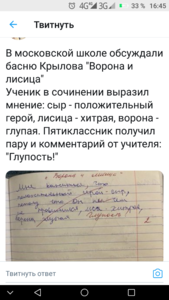 4G 3G 33 % 16:45
Твитнуть
В московской школе обсуждали
басню Крылова "Ворона и
лисица"
Ученик в сочинении выразил
мнение: сыр - положительный
герой, лисица - хитрая, ворона -
глупая. Пятиклассник получил
пару и комментарий от учителя:
"Глупость!"
Ворона и лисица
Мне
герой - сыр,
ворона глупая Глупость 2
Твитнуть ответ